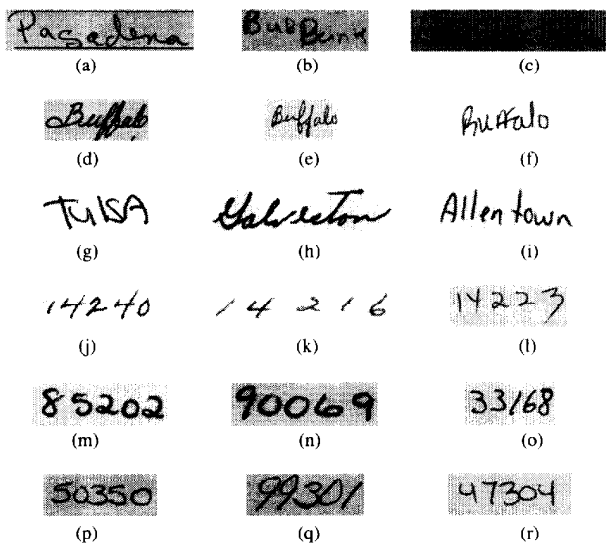 Pasadena BuRBank
(a) (b) (c)
Buffalo Buffalo Buffalo
(d) (e) (f)
TulSA Galveston Allentown
(g) (h) (i)
14240 14216 14223
(j) (k) (l)
85202 90069 33168
(m) (n) (o)
50350 99301 47304
(p) (q) (r)